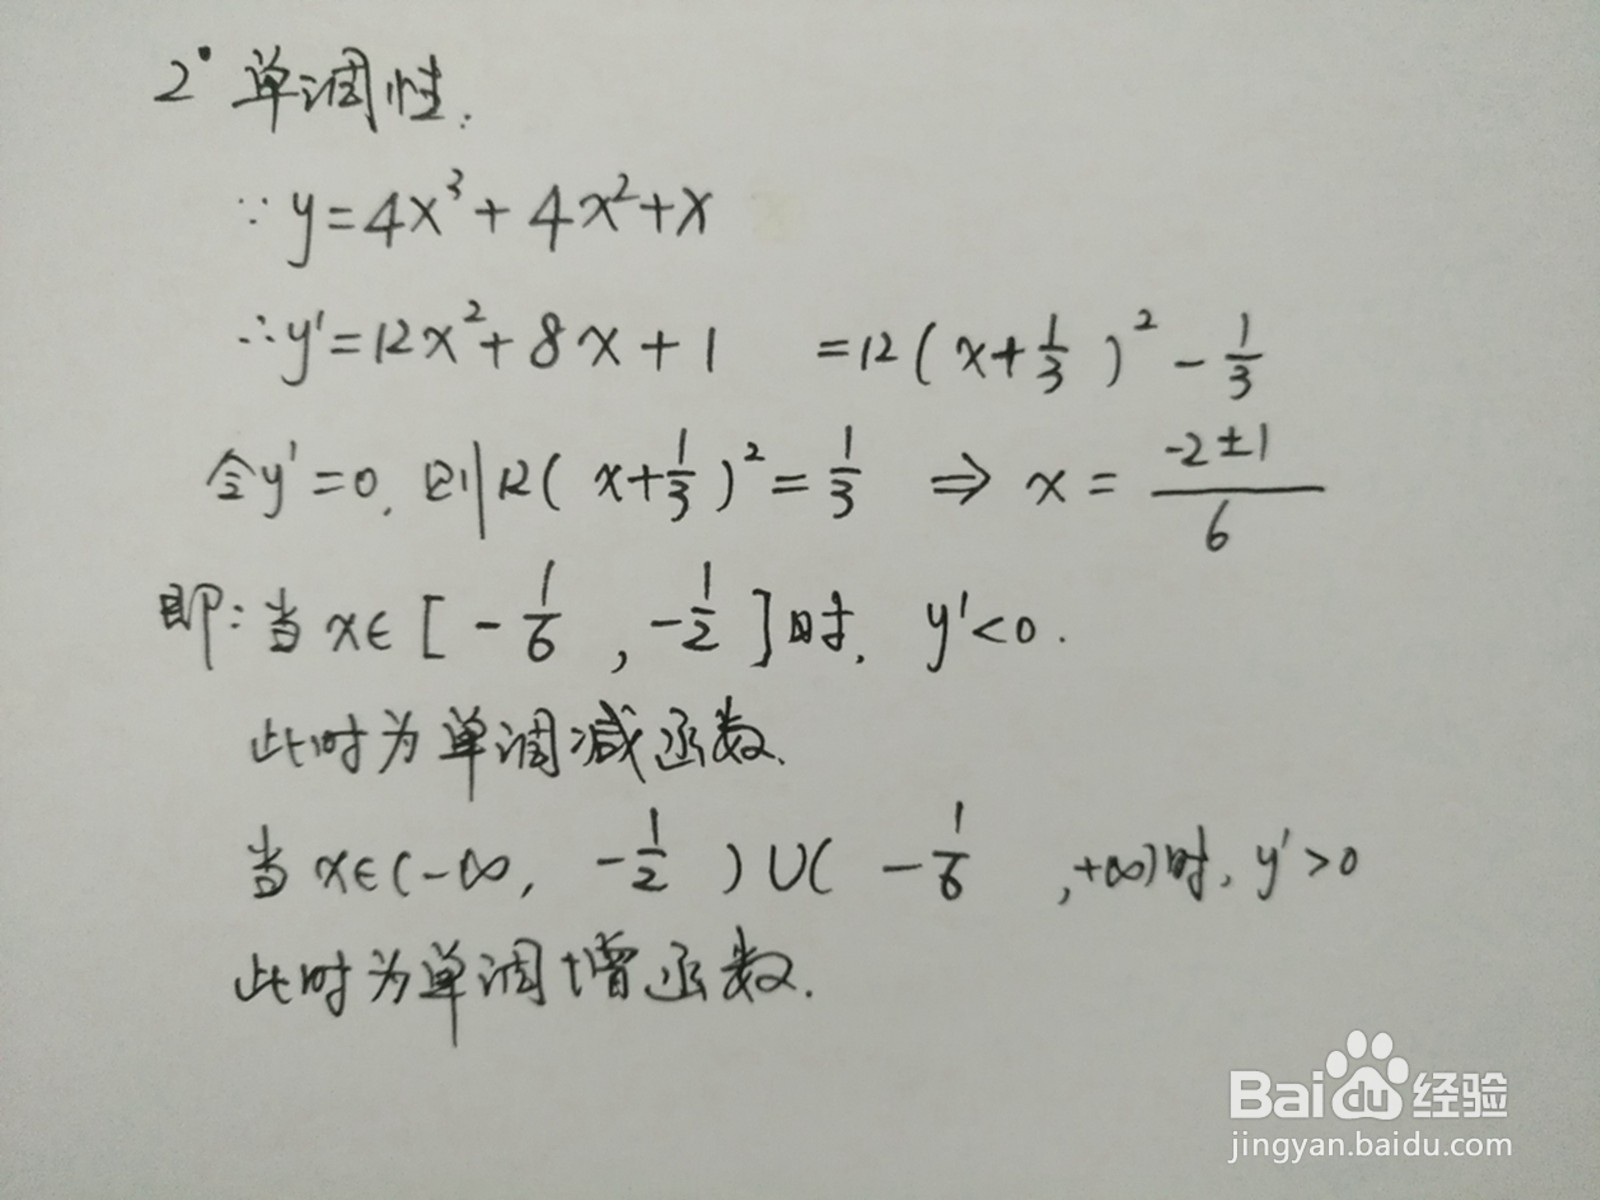 2° 单调性:
∵ y=4x³+4x²+x
∴y'=12x²+8x+1 =12(x+1/3)²-1/3
令y'=0,则12(x+1/3)²=1/3 ⇒ x=(-2±1)/6
即:当x∈[-1/6,-1/2]时,y'<0.
此时为单调减函数.
当x∈(-∞,-1/2)∪(-1/6,+∞)时,y'>0
此时为单调增函数.
Baidu经验
jingyan.baidu.com